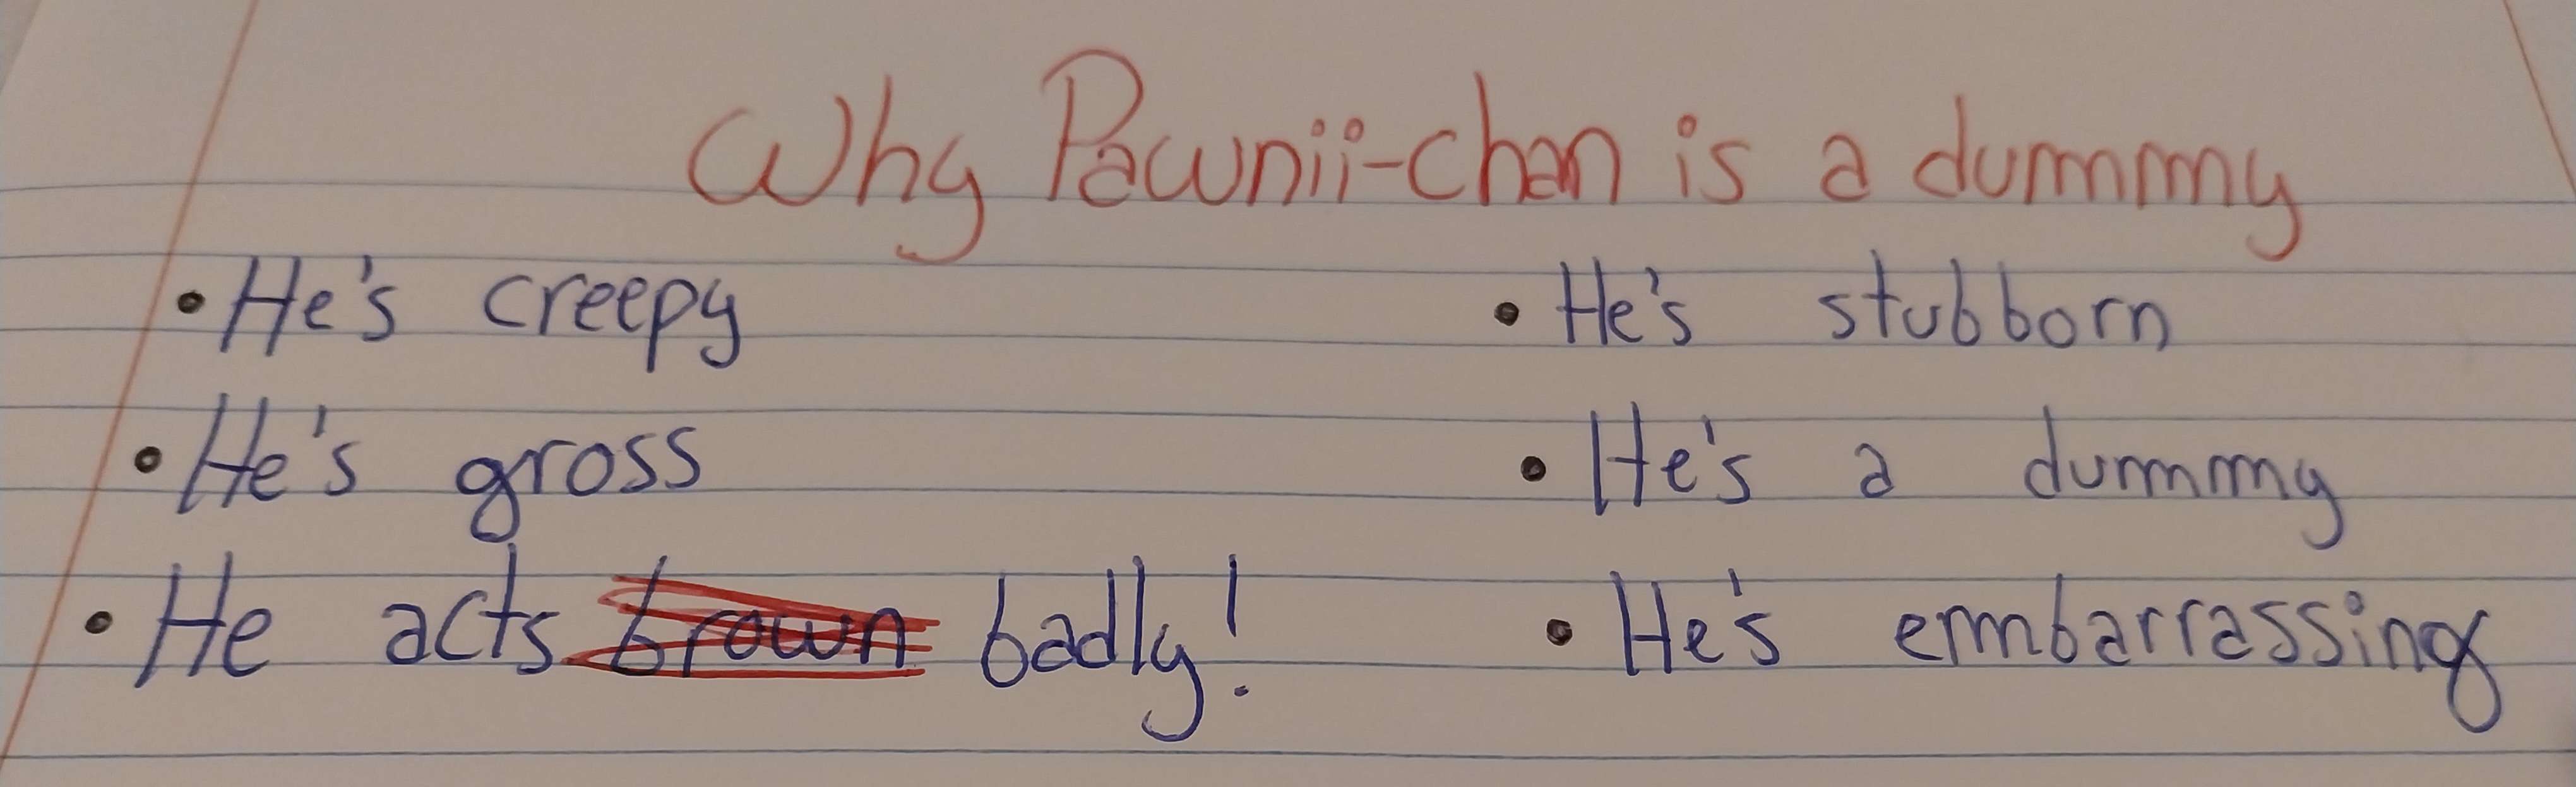 Why Pawnii-chan is a dummy
• He's creepy
• He's gross
• He acts brown badly!
• He's stubborn
• He's a dummy
• He's embarrassing